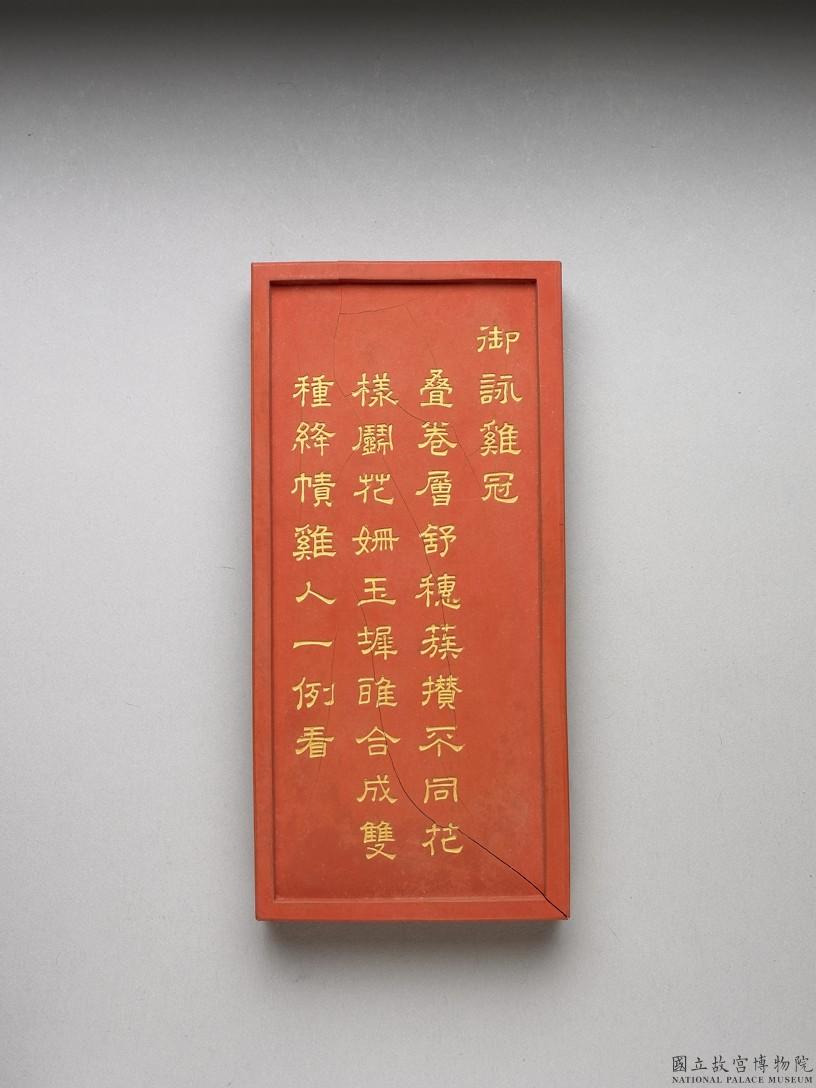 御詠雞冠
疊卷層舒穗蔟攢不同花
樣鬬花姍玉墀雎合成雙
種絳幘雞人一例看
國立故宮博物院
NATIONAL PALACE MUSEUM